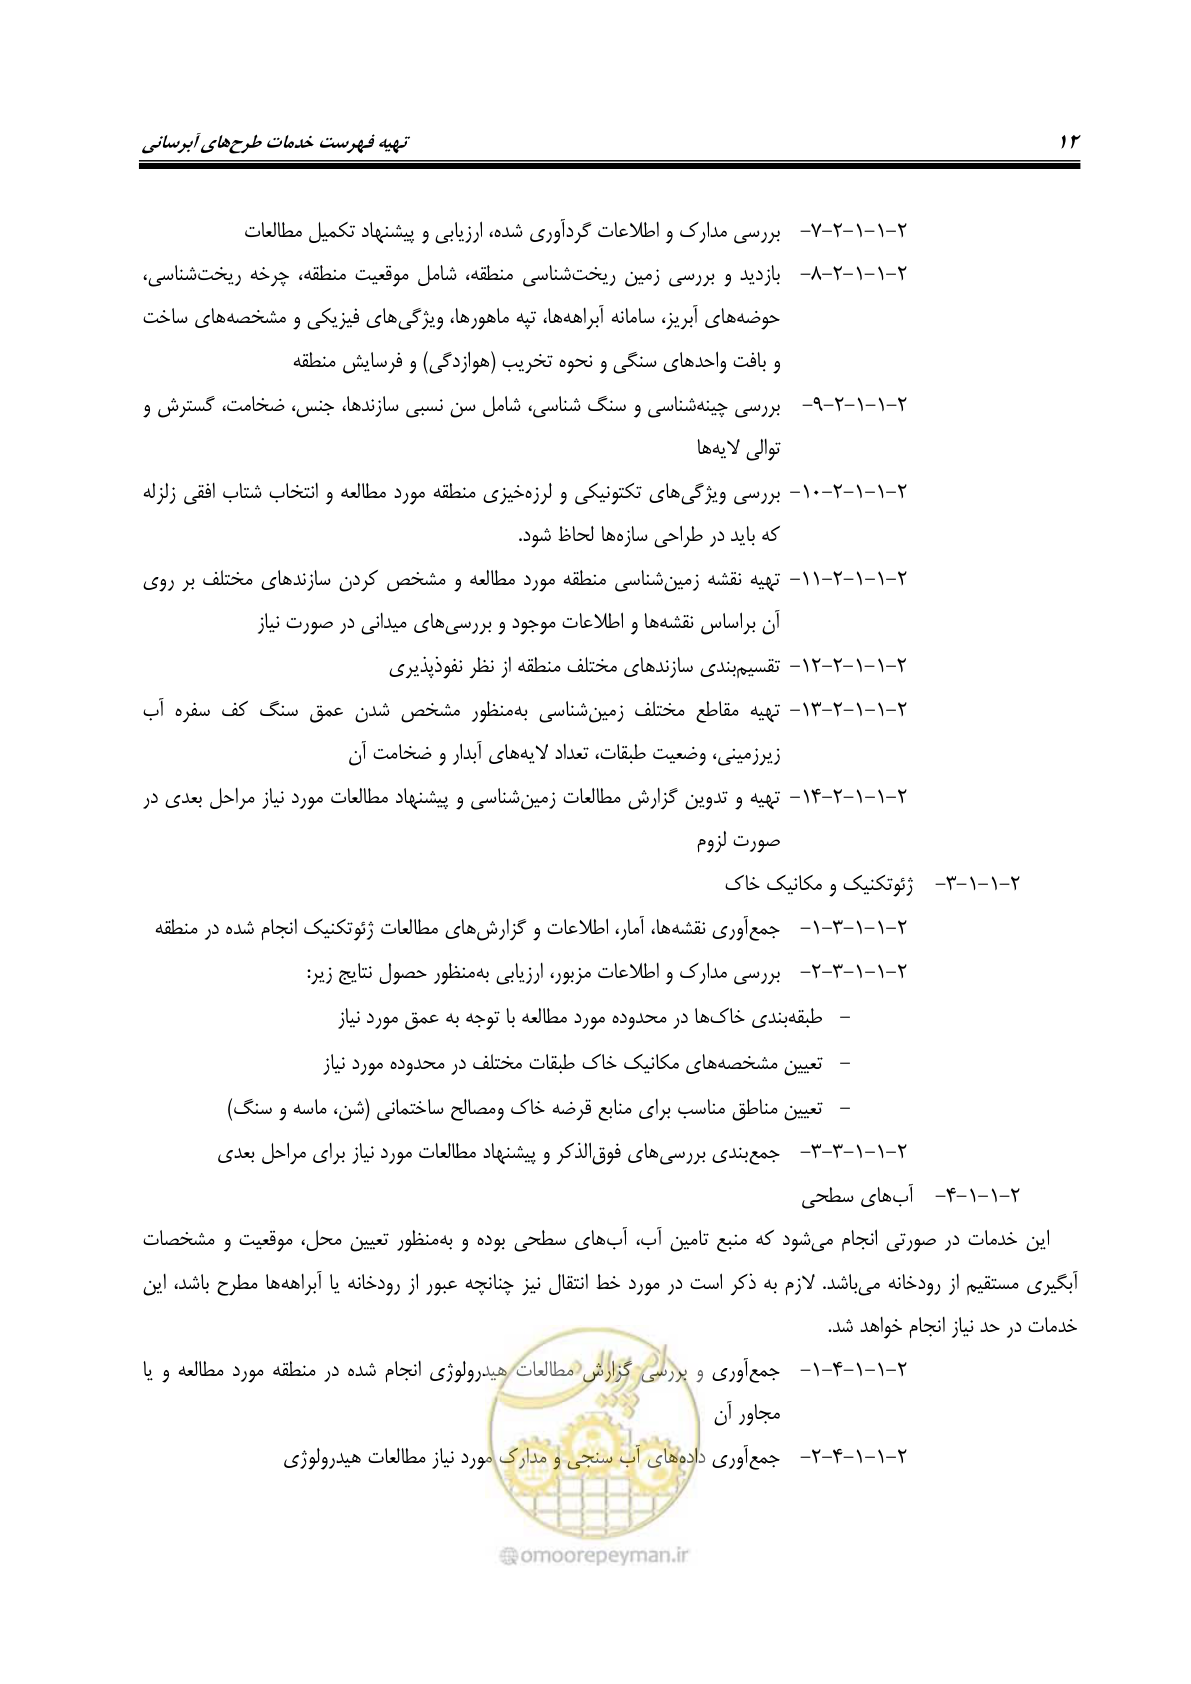 ۱۲ تهیه فهرست خدمات طرح‌های آبرسانی
۲-۱-۱-۲-۷- بررسی مدارک و اطلاعات گردآوری شده، ارزیابی و پیشنهاد تکمیل مطالعات
۲-۱-۱-۲-۸- بازدید و بررسی زمین ریخت‌شناسی منطقه، شامل موقعیت منطقه، چرخه ریخت‌شناسی،
حوضه‌های آبریز، سامانه آبراهه‌ها، تپه ماهورها، ویژگی‌های فیزیکی و مشخصه‌های ساخت
و بافت واحدهای سنگی و نحوه تخریب (هوازدگی) و فرسایش منطقه
۲-۱-۱-۲-۹- بررسی چینه‌شناسی و سنگ شناسی، شامل سن نسبی سازندها، جنس، ضخامت، گسترش و
توالی لایه‌ها
۲-۱-۱-۲-۱۰- بررسی ویژگی‌های تکتونیکی و لرزه‌خیزی منطقه مورد مطالعه و انتخاب شتاب افقی زلزله
که باید در طراحی سازه‌ها لحاظ شود.
۲-۱-۱-۲-۱۱- تهیه نقشه زمین‌شناسی منطقه مورد مطالعه و مشخص کردن سازندهای مختلف بر روی
آن براساس نقشه‌ها و اطلاعات موجود و بررسی‌های میدانی در صورت نیاز
۲-۱-۱-۲-۱۲- تقسیم‌بندی سازندهای مختلف منطقه از نظر نفوذپذیری
۲-۱-۱-۲-۱۳- تهیه مقاطع مختلف زمین‌شناسی به‌منظور مشخص شدن عمق سنگ کف سفره آب
زیرزمینی، وضعیت طبقات، تعداد لایه‌های آبدار و ضخامت آن
۲-۱-۱-۲-۱۴- تهیه و تدوین گزارش مطالعات زمین‌شناسی و پیشنهاد مطالعات مورد نیاز مراحل بعدی در
صورت لزوم
۲-۱-۱-۳- ژئوتکنیک و مکانیک خاک
۲-۱-۱-۳-۱- جمع‌آوری نقشه‌ها، آمار، اطلاعات و گزارش‌های مطالعات ژئوتکنیک انجام شده در منطقه
۲-۱-۱-۳-۲- بررسی مدارک و اطلاعات مزبور، ارزیابی به‌منظور حصول نتایج زیر:
– طبقه‌بندی خاک‌ها در محدوده مورد مطالعه با توجه به عمق مورد نیاز
– تعیین مشخصه‌های مکانیک خاک طبقات مختلف در محدوده مورد نیاز
– تعیین مناطق مناسب برای منابع قرضه خاک ومصالح ساختمانی (شن، ماسه و سنگ)
۲-۱-۱-۳-۳- جمع‌بندی بررسی‌های فوق‌الذکر و پیشنهاد مطالعات مورد نیاز برای مراحل بعدی
۲-۱-۱-۴- آب‌های سطحی
این خدمات در صورتی انجام می‌شود که منبع تامین آب، آب‌های سطحی بوده و به‌منظور تعیین محل، موقعیت و مشخصات
آبگیری مستقیم از رودخانه می‌باشد. لازم به ذکر است در مورد خط انتقال نیز چنانچه عبور از رودخانه یا آبراهه‌ها مطرح باشد، این
خدمات در حد نیاز انجام خواهد شد.
۲-۱-۱-۴-۱- جمع‌آوری و بررسی گزارش مطالعات هیدرولوژی انجام شده در منطقه مورد مطالعه و یا
مجاور آن
۲-۱-۱-۴-۲- جمع‌آوری داده‌های آب سنجی و مدارک مورد نیاز مطالعات هیدرولوژی
امور پیمان
omoorepeyman.ir